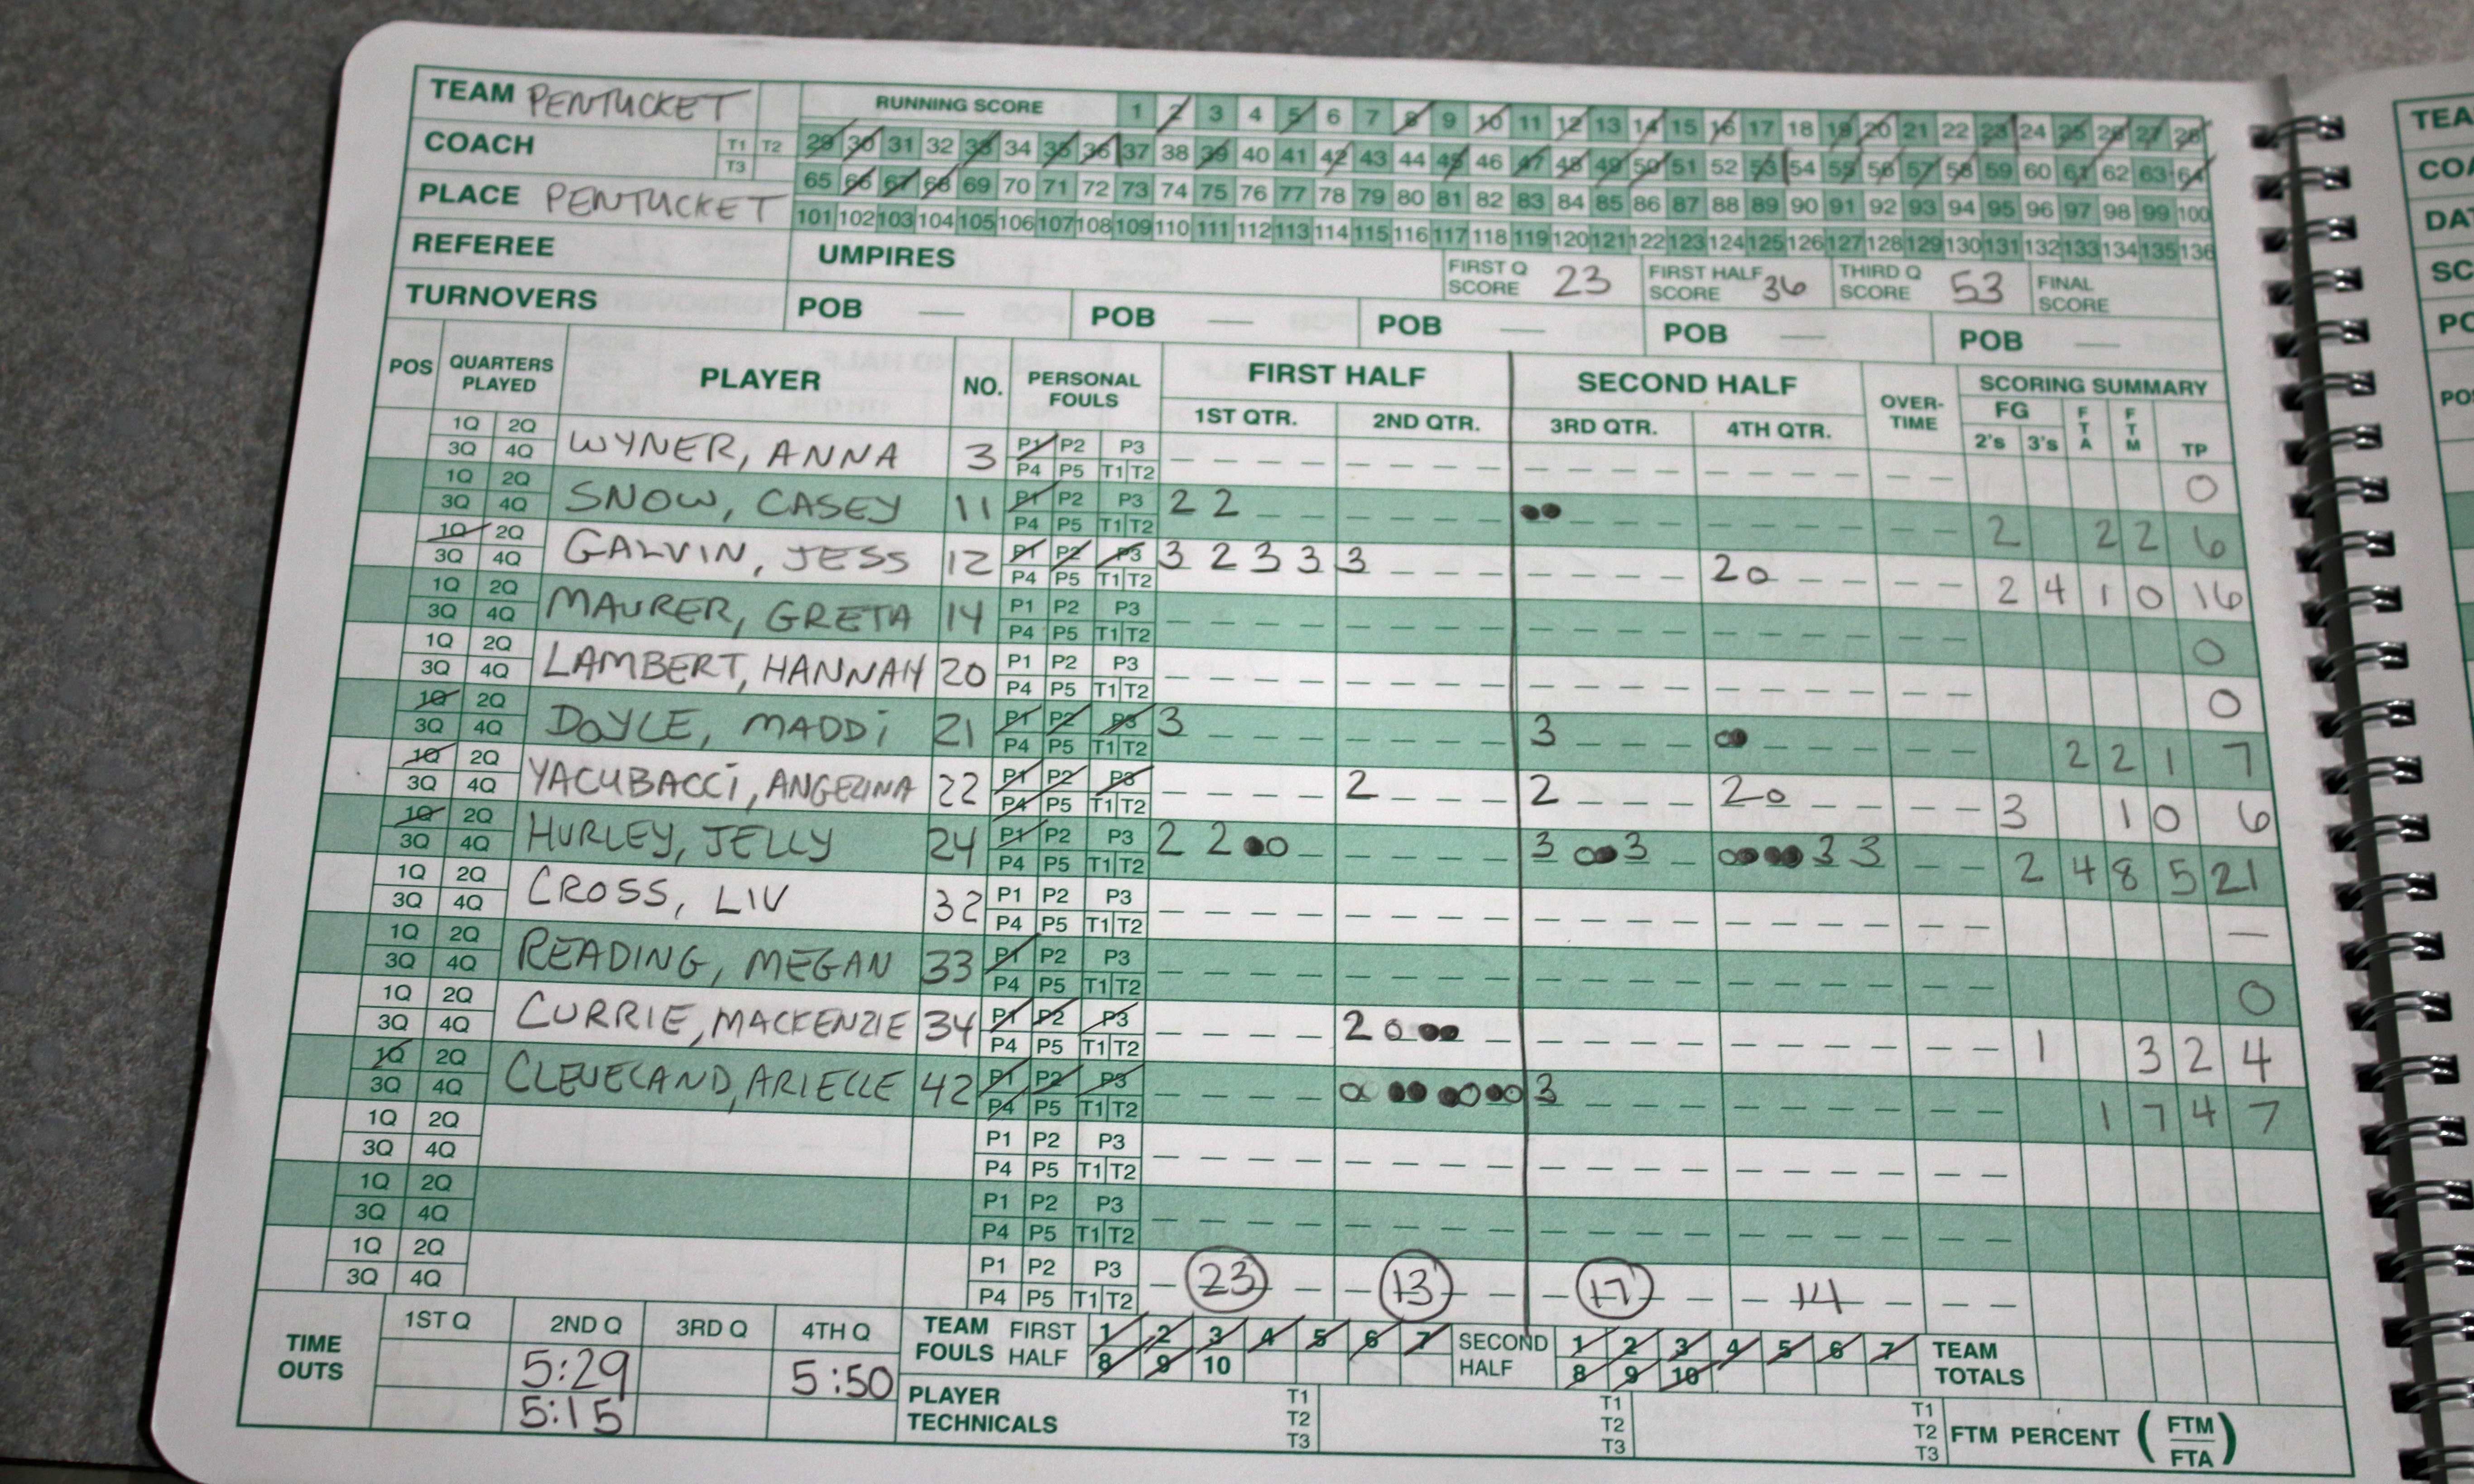 TEAM PENTUCKET RUNNING SCORE 1 2 3 4 5 6 7 8 9 10 11 12 13 14 15 16 17 18 19 20 21 22 23 24 25 26 27 28
COACH T1 T2 T3 29 30 31 32 33 34 35 36 37 38 39 40 41 42 43 44 45 46 47 48 49 50 51 52 53 54 55 56 57 58 59 60 61 62 63 64
PLACE PENTUCKET 65 66 67 68 69 70 71 72 73 74 75 76 77 78 79 80 81 82 83 84 85 86 87 88 89 90 91 92 93 94 95 96 97 98 99 100
101 102 103 104 105 106 107 108 109 110 111 112 113 114 115 116 117 118 119 120 121 122 123 124 125 126 127 128 129 130 131 132 133 134 135 136
REFEREE UMPIRES FIRST Q SCORE 23 FIRST HALF SCORE 36 THIRD Q SCORE 53 FINAL SCORE
TURNOVERS POB — POB — POB — POB — POB —
POS QUARTERS PLAYED PLAYER NO. PERSONAL FOULS FIRST HALF SECOND HALF OVER-TIME SCORING SUMMARY
1ST QTR. 2ND QTR. 3RD QTR. 4TH QTR. FG 2's 3's FTA FTM TP
1Q 2Q WYNER, ANNA 3 P1 P2 P3
3Q 4Q P4 P5 T1 T2 0
1Q 2Q SNOW, CASEY 11 P1 P2 P3 2 2
3Q 4Q P4 P5 T1 T2 2 2 2 6
1Q 2Q GALVIN, JESS 12 P1 P2 P3 3 2 3 3 3 2 0
3Q 4Q P4 P5 T1 T2 2 4 1 0 16
1Q 2Q MAURER, GRETA 14 P1 P2 P3
3Q 4Q P4 P5 T1 T2 0
1Q 2Q LAMBERT, HANNAH 20 P1 P2 P3
3Q 4Q P4 P5 T1 T2 0
1Q 2Q DOYLE, MADDi 21 P1 P2 P3 3 3
3Q 4Q P4 P5 T1 T2 2 2 1 7
1Q 2Q YACUBACCi, ANGELINA 22 P1 P2 P3 2 2 2 0
3Q 4Q P4 P5 T1 T2 3 1 0 6
1Q 2Q HURLEY, JELLY 24 P1 P2 P3 2 2 3 3 3 3
3Q 4Q P4 P5 T1 T2 2 4 8 5 21
1Q 2Q CROSS, LIV 32 P1 P2 P3
3Q 4Q P4 P5 T1 T2 —
1Q 2Q READING, MEGAN 33 P1 P2 P3
3Q 4Q P4 P5 T1 T2 0
1Q 2Q CURRIE, MACKENZIE 34 P1 P2 P3 2 0
3Q 4Q P4 P5 T1 T2 1 3 2 4
1Q 2Q CLEVELAND, ARIELLE 42 P1 P2 P3 3
3Q 4Q P4 P5 T1 T2 1 7 4 7
1Q 2Q P1 P2 P3
3Q 4Q P4 P5 T1 T2
1Q 2Q P1 P2 P3
3Q 4Q P4 P5 T1 T2
1Q 2Q P1 P2 P3
3Q 4Q P4 P5 T1 T2 23 13 17 14
TIME OUTS 1ST Q 2ND Q 3RD Q 4TH Q TEAM FOULS FIRST HALF 1 2 3 4 5 6 7 SECOND HALF 1 2 3 4 5 6 7 TEAM TOTALS
5:29 5:50 8 9 10 8 9 10
5:15 PLAYER TECHNICALS T1 T2 T3 T1 T2 T3 T1 T2 T3 FTM PERCENT (FTM/FTA)
TEA
COA
DAT
SC
PO
POS